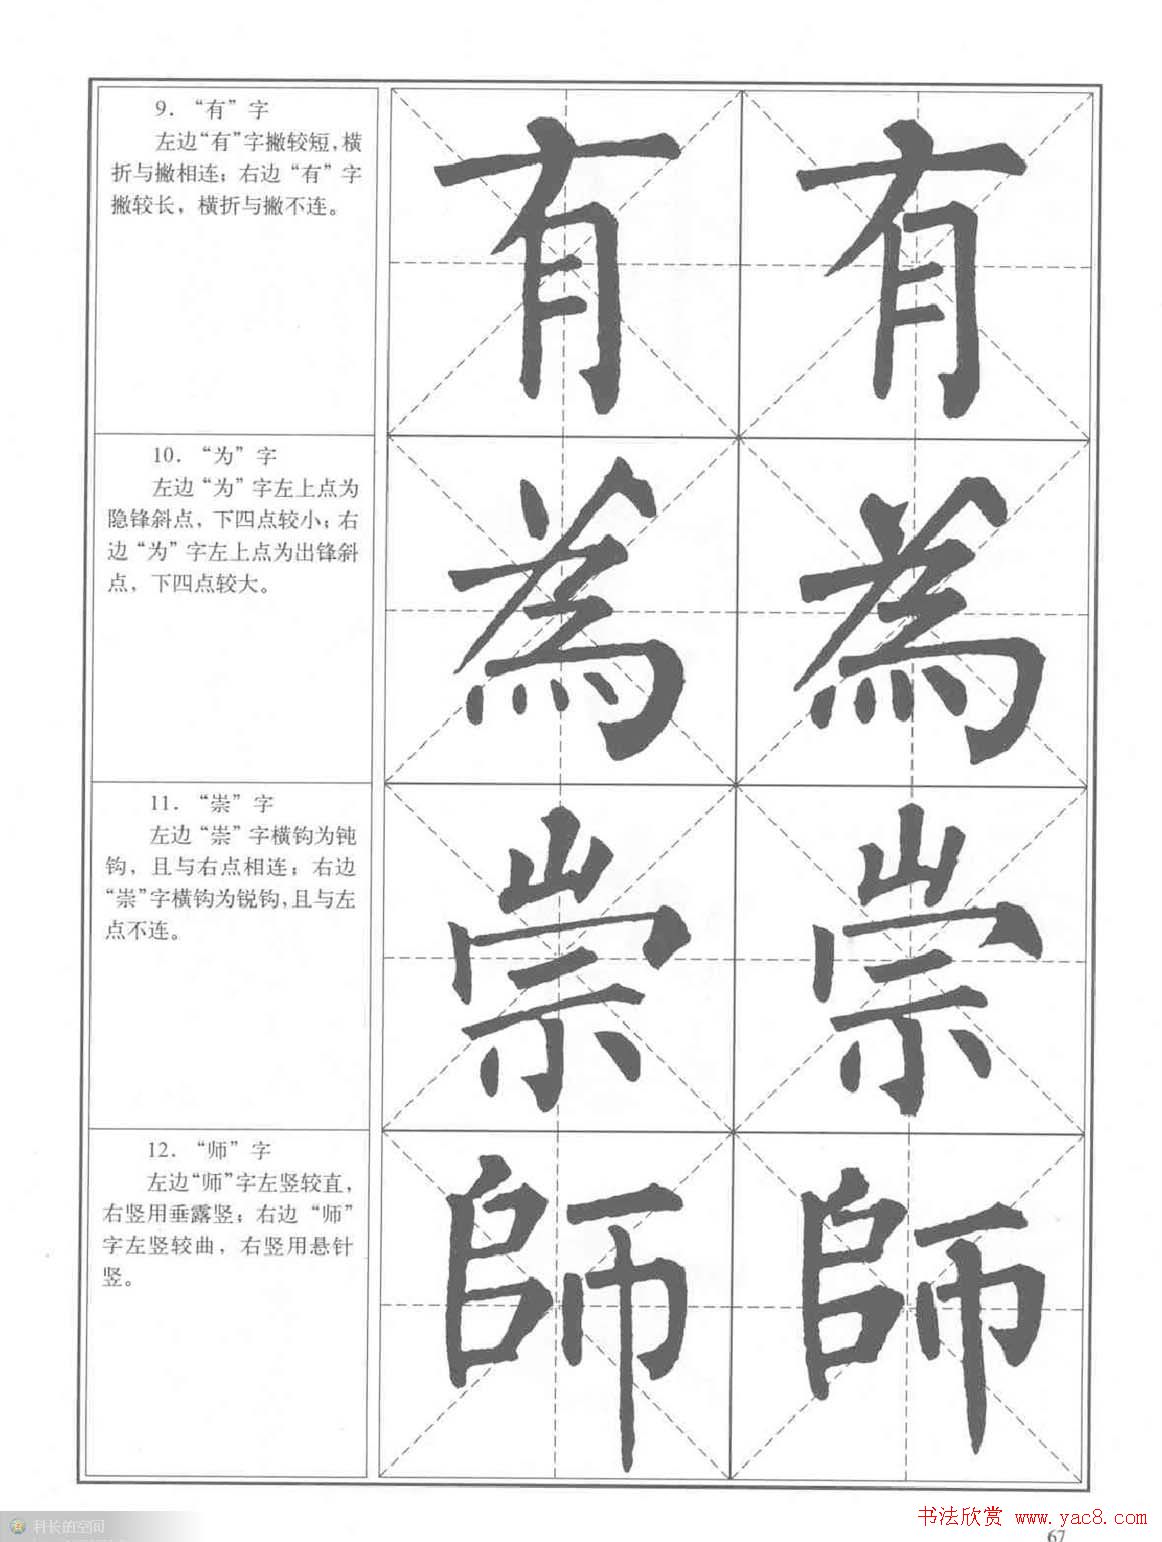 9．“有”字
左边“有”字撇较短，横
折与撇相连；右边“有”字
撇较长，横折与撇不连。
有 有
10．“为”字
左边“为”字左上点为
隐锋斜点，下四点较小；右
边“为”字左上点为出锋斜
点，下四点较大。
為 為
11．“崇”字
左边“崇”字横钩为钝
钩，且与右点相连；右边
“崇”字横钩为锐钩，且与左
点不连。
崇 崇
12．“师”字
左边“师”字左竖较直，
右竖用垂露竖；右边“师”
字左竖较曲，右竖用悬针
竖。
師 師
科长的空间
书法欣赏 www.yac8.com
67